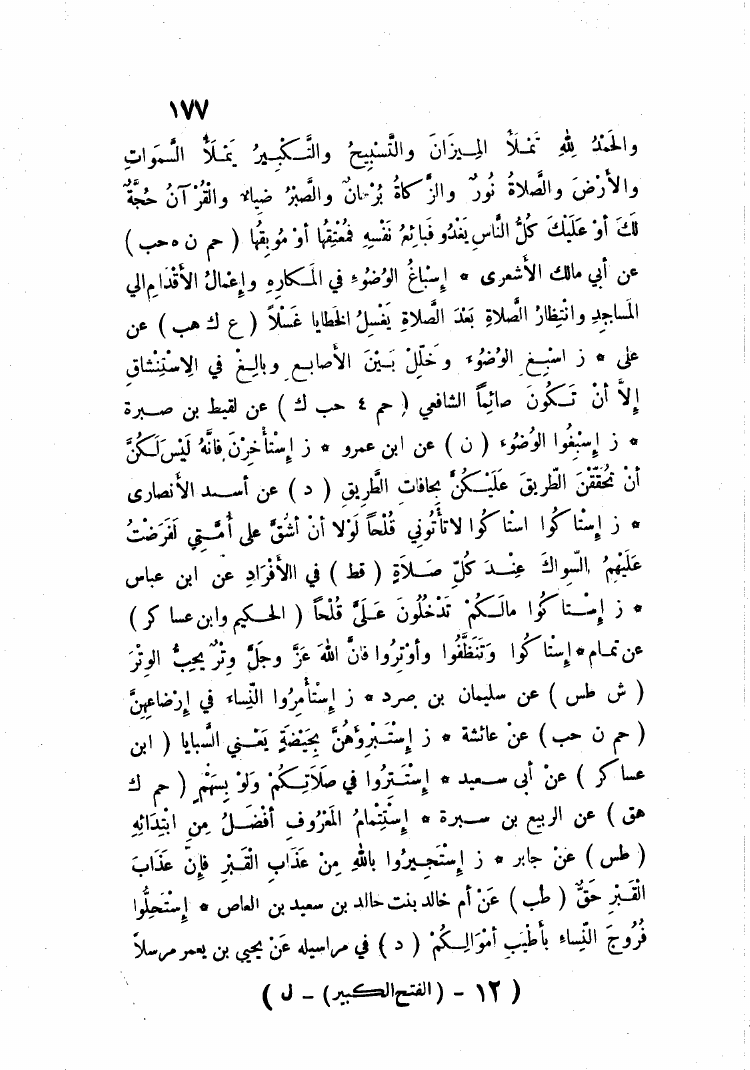 ١٧٧
والْحَمْدُ لِلهِ تَمْلَأُ المِيزَانَ والتَّسْبِيحُ والتَّكْبِيرُ يَمْلَأُ السَّمَوَاتِ
والأرْضَ والصَّلاةُ نُورٌ والزَّكاةُ بُرْهانٌ والصَّبْرُ ضِياءٌ والْقُرْآنُ حُجَّةٌ
لَكَ أوْ عَلَيْكَ كُلُّ النَّاسِ يَغْدُو فَبائِعُ نَفْسِهِ فَمُعْتِقُها أوْ مُوبِقُها ( حم ن ه حب )
عن أبي مالك الأشعرى * إسْباغُ الوُضُوءِ في المَكارِهِ وإعْمالُ الأقْدَامِ إلي
المَساجِدِ وانْتِظارُ الصَّلاةِ بَعْدَ الصَّلاةِ يَغْسِلُ الخَطايا غَسْلاً ( ع ك هب ) عن
على * ز اسْبِغِ الوُضُوءَ وخَلِّلْ بَيْنَ الأصابِعِ وبالِغْ في الِاسْتِنْشاقِ
إلاَّ أنْ تَكُونَ صائِمًا الشافعي ( حم ٤ حب ك ) عن لقيط بن صبرة
* ز إسْبِغُوا الوُضُوءَ ( ن ) عن ابن عمرو * ز إسْتَأْخِرْنَ فانَّهُ لَيْسَ لَكُنَّ
أنْ تَحُقِقْنَ الطَّرِيقَ عَلَيْكُنَّ بِحافاتِ الطَّرِيقِ ( د ) عن أسيد الأنصارى
* ز إسْتاكُوا اسْتاكُوا لاتَأْتُونِي قُلْحاً لَوْلا أنْ أشُقَّ على أُمَّتِي لَفَرَضْتُ
عَلَيْهِمُ السِّواكَ عِنْدَ كُلِّ صَلاةٍ ( قط ) في االأفْرَادِ عن ابن عباس
* ز إسْتاكُوا مالَكُمْ تَدْخُلُونَ عَلَىَّ قُلْحاً ( الحكيم وابن عساكر )
عن تمام * إسْتاكُوا وَتَنَظَّفُوا وأوْتِرُوا فانَّ اللهَ عَزَّ وجَلَّ وِتْرٌ يحِبُّ الوِتْرَ
( ش طس ) عن سليمان بن صرد * ز إسْتَأْمِرُوا النِّساءَ في إرْضاعِهِنَّ
( حم ن حب ) عنْ عائشة * ز إسْتَبْرِؤُهُنَّ بِحَيْضَةٍ يَعْنِي السَّبايا ( ابن
عساكر ) عنْ أبى سعيد * إسْتَتِرُوا في صَلَاتِكُمْ وَلَوْ بِسَهْمٍ ( حم ك
هق ) عن الربيع بن سبرة * إسْتِتْمامُ المَعْرُوفِ أفْضَلُ مِنِ ابْتِدَائِهِ
( طس ) عنْ جابر * ز إسْتَجِيرُوا بِاللهِ مِنْ عَذَابِ الْقَبْرِ فإنَّ عَذَابَ
الْقَبْرِ حَقٌّ ( طب ) عَنْ أم خالد بنت خالد بن سعيد بن العاص * إسْتَحِلُّوا
فُرُوجَ النِّساءِ بأطْيَبِ أمْوَالِكُمْ ( د ) في مراسيله عَنْ يحيي بن يعمر مرسلاً
( ١٢ - (الفتح الكبير) - ل )